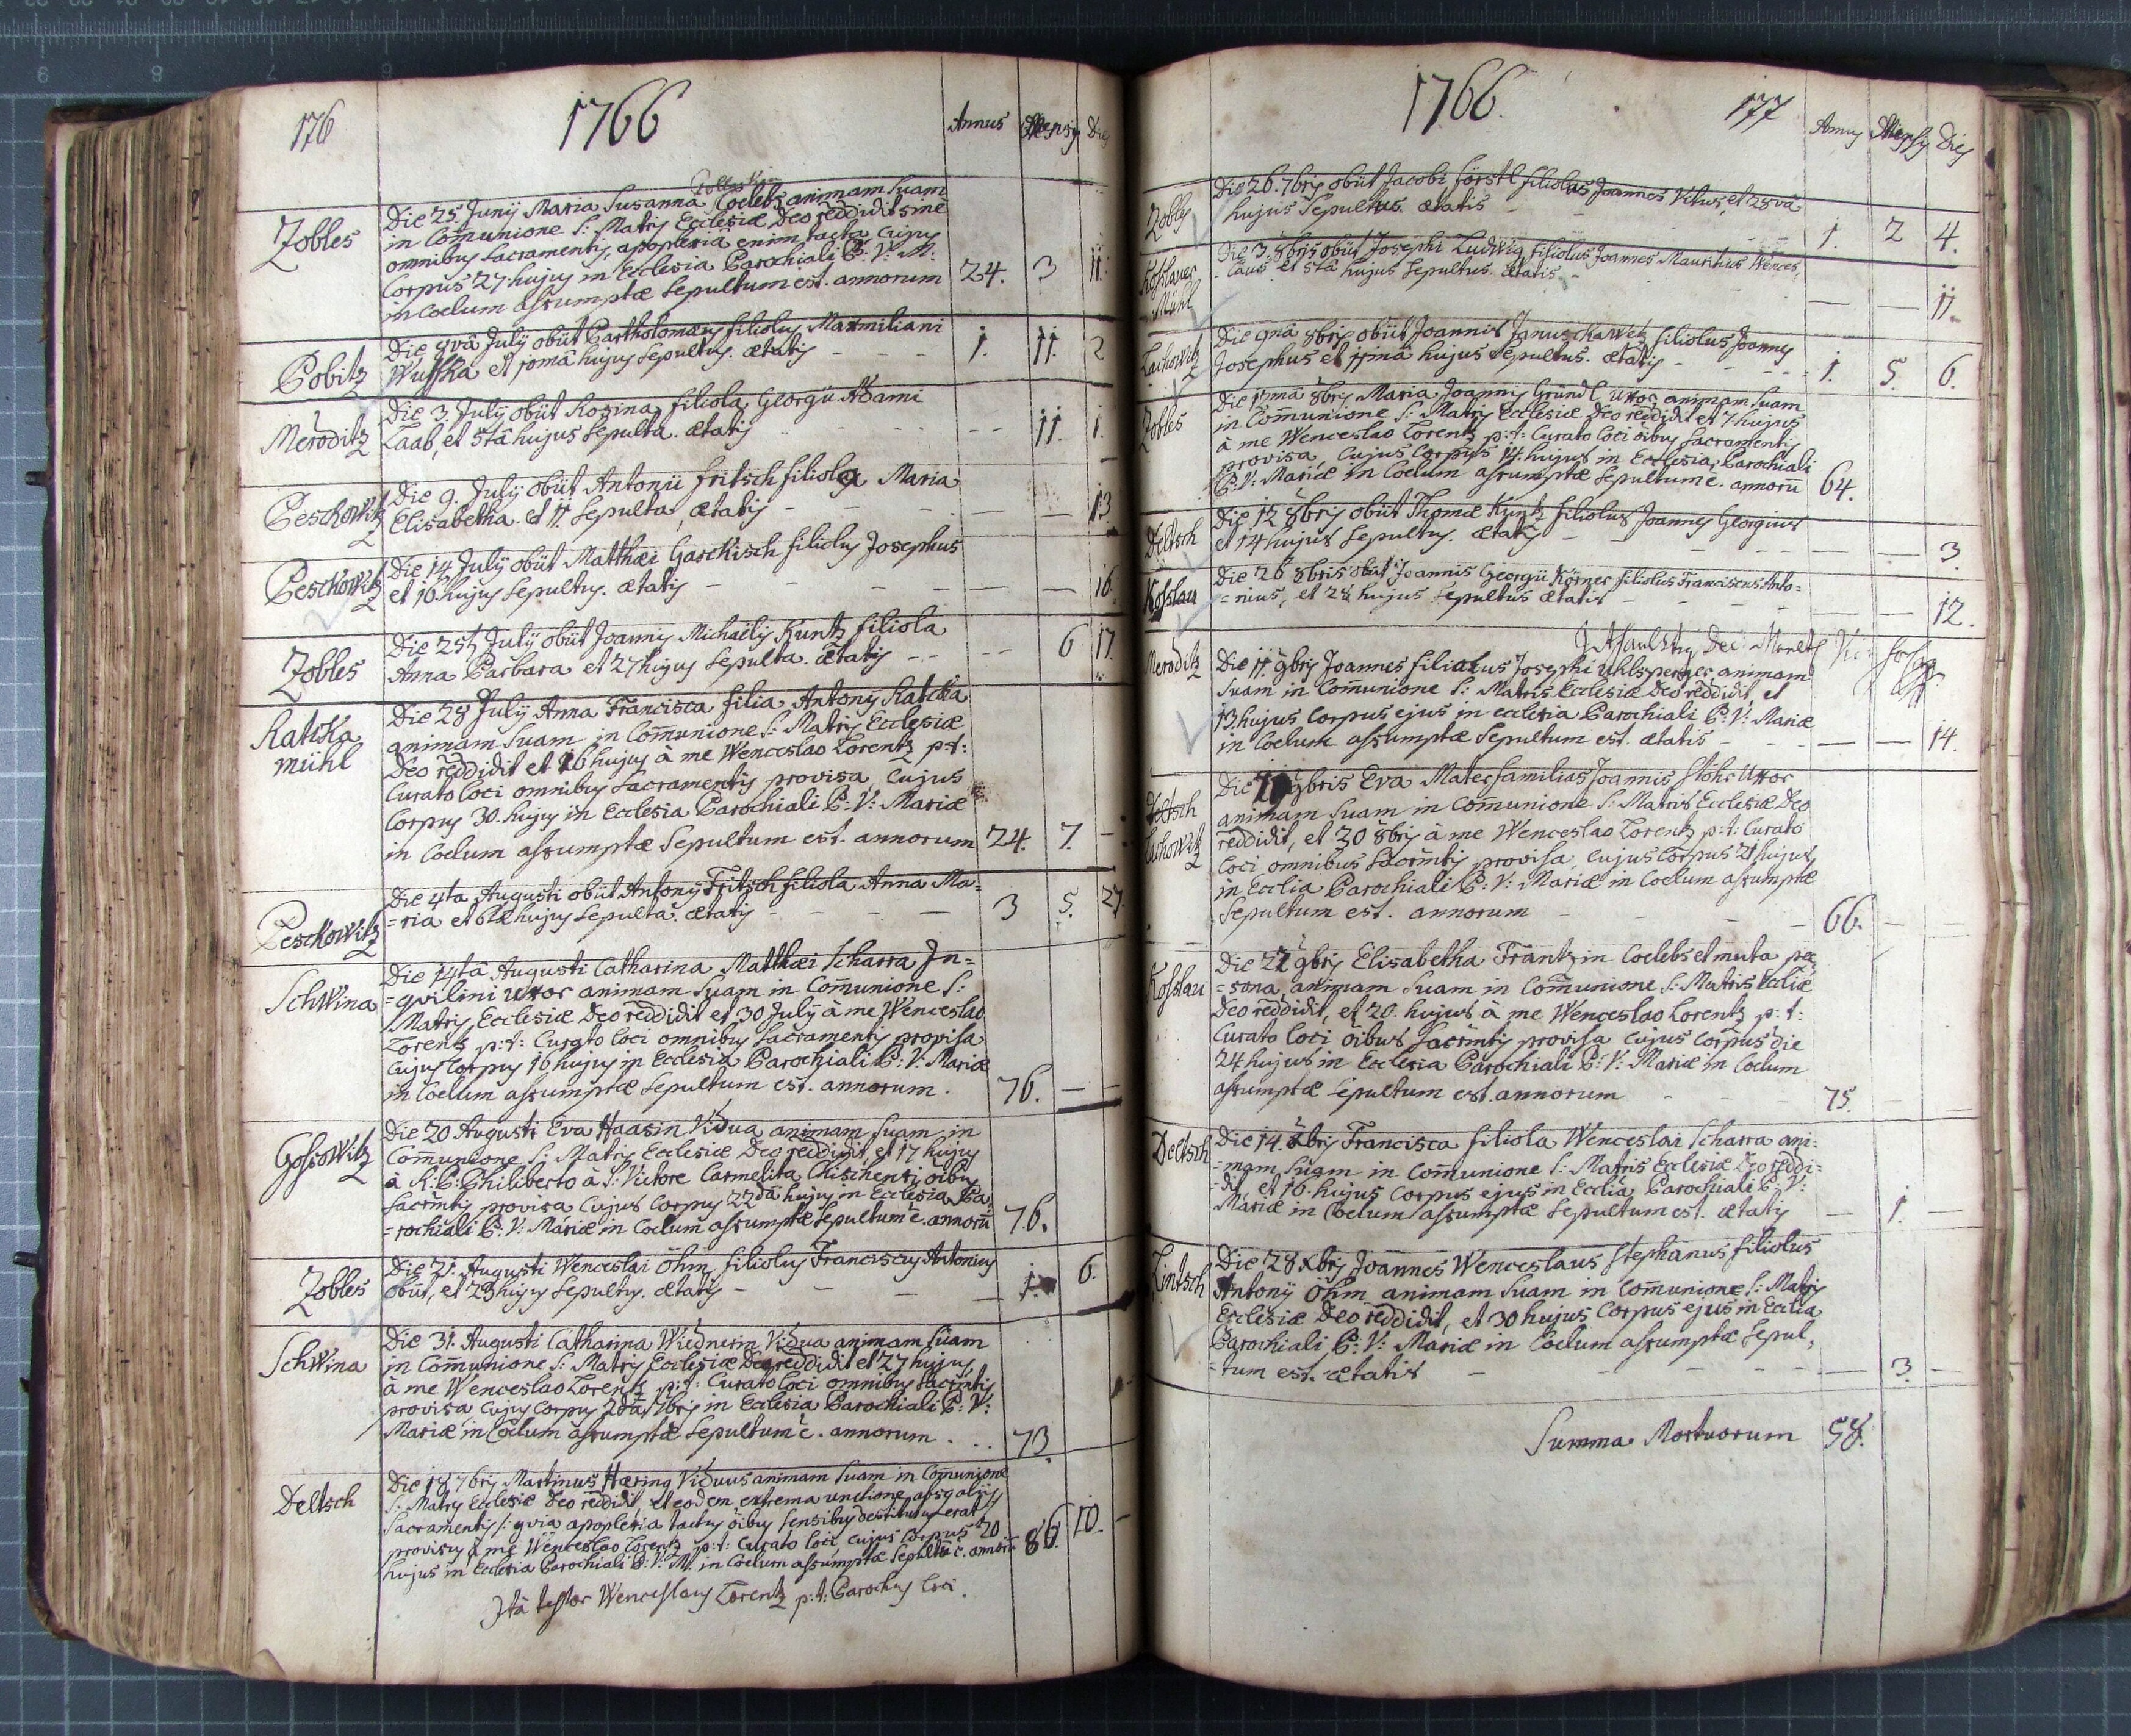 176 1766 Annus Mensis Dies
Zobles Die 25 Junij Maria Susanna Coelebs animam suam
in Com̄unione S: Matris Ecclesiæ Deo reddidit sine
omnibus Sacramentis, apoplexia enim tacta cujus
Corpus 27 hujus in Ecclesia Parochiali B: V: M:
in Coelum assumptæ Sepultum est. annorum 24. 3 11.
Pobitz Die 9vâ July obiit Bartholomæus filiolus Maxmiliani
Wusska et 10mâ hujus Sepultus. ætatis - - - 1. 11. 2
Meroditz Die 3 July obiit Rosina filiola Georgii Adami
Laab, et 5tâ hujus Sepulta. ætatis - - - 11. 1.
Peschowitz Die 9. July obiit Antonii fritsch filiola Maria
Elisabetha et 11. Sepulta, ætatis - - - 13
Peschowitz Die 14 July obiit Matthæi Garckisch filiolus Josephus
et 16 hujus Sepultus. ætatis - - - 16.
Zobles Die 25t July obiit Joannis Michaëlis Kuntz filiola
Anna Barbara et 27 hujus Sepulta. ætatis - - - 6 17.
Ratcka Die 28 July Anna Francisca filia Antonij Ratcka
mühl animam suam in Com̄unione S: Matris Ecclesiæ
Deo reddidit et 26 hujus à me Wenceslao Lorentz p:t:
Curato loci omnibus Sacramentis provisa, cujus
Corpus 30. hujus in Ecclesia Parochiali B: V: Mariæ
in Coelum assumptæ Sepultum est. annorum 24. 7. -
Peschowitz Die 4ta Augusti obiit Antonij Fritsch filiola Anna Ma=
=ria et 6tâ hujus Sepulta. ætatis - - - 3 5. 27.
Schwina Die 14tâ Augusti Catharina Matthæi Scharra In=
=qvilini Uxor animam suam in Com̄unione S:
Matris Ecclesiæ Deo reddidit et 30 July à me Wenceslao
Lorentz p:t: Curato loci omnibus Sacramentis provisa
cujus Corpus 16 hujus in Ecclesia Parochiali B: V: Mariæ
in Coelum assumptæ Sepultum est. annorum. 76. - -
Gossowitz Die 20 Augusti Eva Haasin Vidua animam suam in
Com̄unione S: Matris Ecclesiæ Deo reddidit et 17 hujus
à R: P: Philiberto à S: Victore Carmelita Chischensi oībus
Sacrm̄tis provisa cujus Corpus 22dâ hujus in Ecclesia Pa=
=rochiali B: V: Mariæ in Coelum assumptæ Sepultum ē. annorū 76.
Zobles Die 21. Augusti Wenceslai Öhm filiolus Franciscus Antonius
obiit, et 23 hujus Sepultus. ætatis - - - 1. 6.
Schwina Die 31. Augusti Catharina Wiednerin Vidua animam suam
in Com̄unione S: Matris Ecclesiæ Deo reddidit et 27 hujus
à me Wenceslao Lorentz p:t: Curato loci omnibus Sacrm̄tis
provisa cujus Corpus 2dâ 7bris in Ecclesia Parochiali B: V:
Mariæ in Coelum assumptæ Sepultum ē. annorum. . . 73.
Deltsch Die 18 7bris Martinus Hæring Viduus animam suam in Com̄unione
S: Matris Ecclesiæ Deo reddidit, et eodem extrema unctione absq alijs
Sacramentis /: qvia apoplexia tactus oībus Sensibus destitutus erat
provisus à me Wenceslao Lorentz p:t: Curato loci, cujus Corpus 20
hujus in Ecclesia Parochiali B: V: M. in Coelum assumptæ Sepultū ē. annorū 86. 10. -
Ità testor Wenceslaus Lorentz p:t: Parochus loci.
1766. 177 Annus Mensis Dies
Zobles Die 26. 7bris obiit Jacobi förstl filiolus Joannes Vitus, et 28vâ
hujus Sepultus. ætatis - - - 1. 2 4.
Kosslauer Die 3. 8bris obiit Josephi Ludwig filiolus Joannes Mauritius Wences=
Mühl =laus et 5tâ hujus Sepultus. ætatis - - - 11.
Lachowitz Die 9nâ 8bris obiit Joannis Januschkawetz filiolus Joannes
Josephus et 11mâ hujus Sepultus. ætatis - - - 1. 5. 6.
Zobles Die 12mâ 8bris Maria Joannis Gründl Uxor animam suam
in Com̄unione S: Matris Ecclesiæ Deo reddidit et 7 hujus
à me Wenceslao Lorentz p:t: Curato loci oībus Sacramentis
provisa, cujus Corpus 14. hujus in Ecclesia Parochiali
B: V: Mariæ in Coelum assumptæ Sepultum ē. annorū 64.
Deltsch Die 12 8bris obiit Thomæ Kuntz filiolus Joannes Georgius
et 14 hujus Sepultus. ætatis - - - 3.
Kosslau Die 26 8bris obiit Joannis Georgii Körner filiolus Franciscus Anto=
=nius, et 28 hujus Sepultus ætatis - - - 12.
Meroditz Die 11. 9bris Joannes filiolus Josephi Uhlsperger animam
suam in Com̄unione S: Matris Ecclesiæ Deo reddidit, et
13 hujus Corpus ejus in ecclesia Parochiali B: V: Mariæ
in Coelum assumptæ Sepultum est. ætatis - - - 14.
Deltsch Die 9bris Eva Mater familias Joannis Stöhr Uxor
Lachowitz animam suam in Com̄unione S: Matris Ecclesiæ Deo
reddidit, et 30 8bris à me Wenceslao Lorentz p:t: Curato
loci omnibus Sacrm̄tis provisa, cujus Corpus 21 hujus
in Ecclia Parochiali B: V: Mariæ in Coelum assumptæ
Sepultum est. annorum - - - 66. - -
Kosslau Die 22 9bris Elisabetha Frantzin Coelebs et muta per
=sona, animam suam in Com̄unione S: Matris Eccliæ
Deo reddidit, et 20. hujus à me Wenceslao Lorentz p:t:
Curato loci oībus Sacrm̄tis provisa cujus Corpus die
24 hujus in Ecclesia Parochiali B: V: Mariæ in Coelum
assumptæ Sepultum est. annorum - - - 75. - -
Deltsch Die 14. Xbris Francisca filiola Wenceslai Scharra ani=
=mam suam in Com̄unione S: Matris Ecclesiæ Deo reddi=
=dit et 16. hujus Corpus ejus in Ecclia Parochiali B: V:
Mariæ in Coelum assumptæ Sepultum est. ætatis - 1. -
Lintsch Die 28 Xbris Joannes Wenceslaus Stephanus filiolus
Antonij Öhm animam suam in Com̄unione S: Matris
Ecclesiæ Deo reddidit, et 30 hujus Corpus ejus in Ecclia
Parochiali B: V: Mariæ in Coelum assumptæ Sepul=
=tum est. ætatis - - - 3. -
Summa Mortuorum 58.